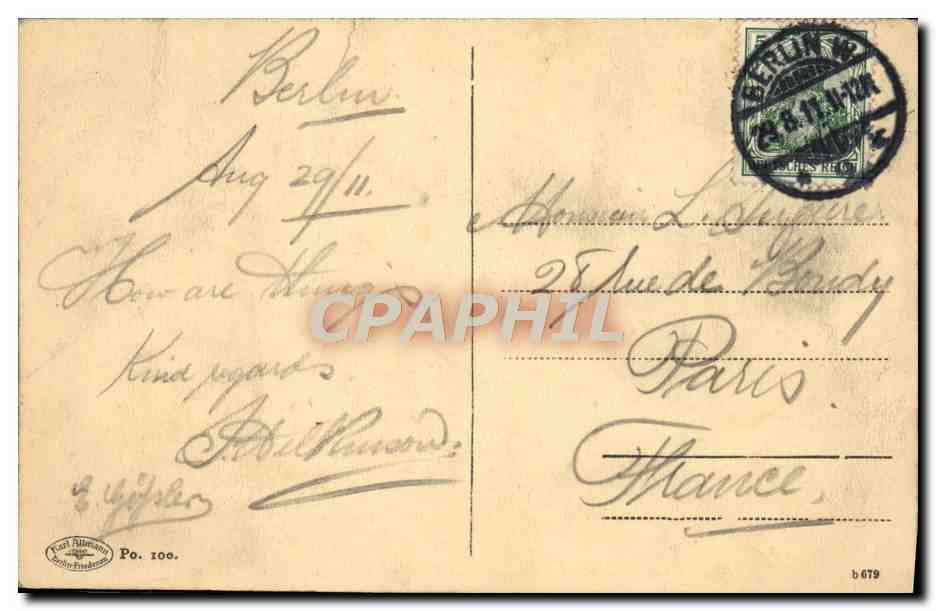 Berlin
Aug 29/11.
How are things
Kind regards
BERLIN W
29.8.11.11-12N
DEUTSCHES REICH
Monsieur L.
Rue de Bondy
Paris
France.
CPAPHIL
Karl Altmann
Berlin-Friedenau
Po. 100.
b 679